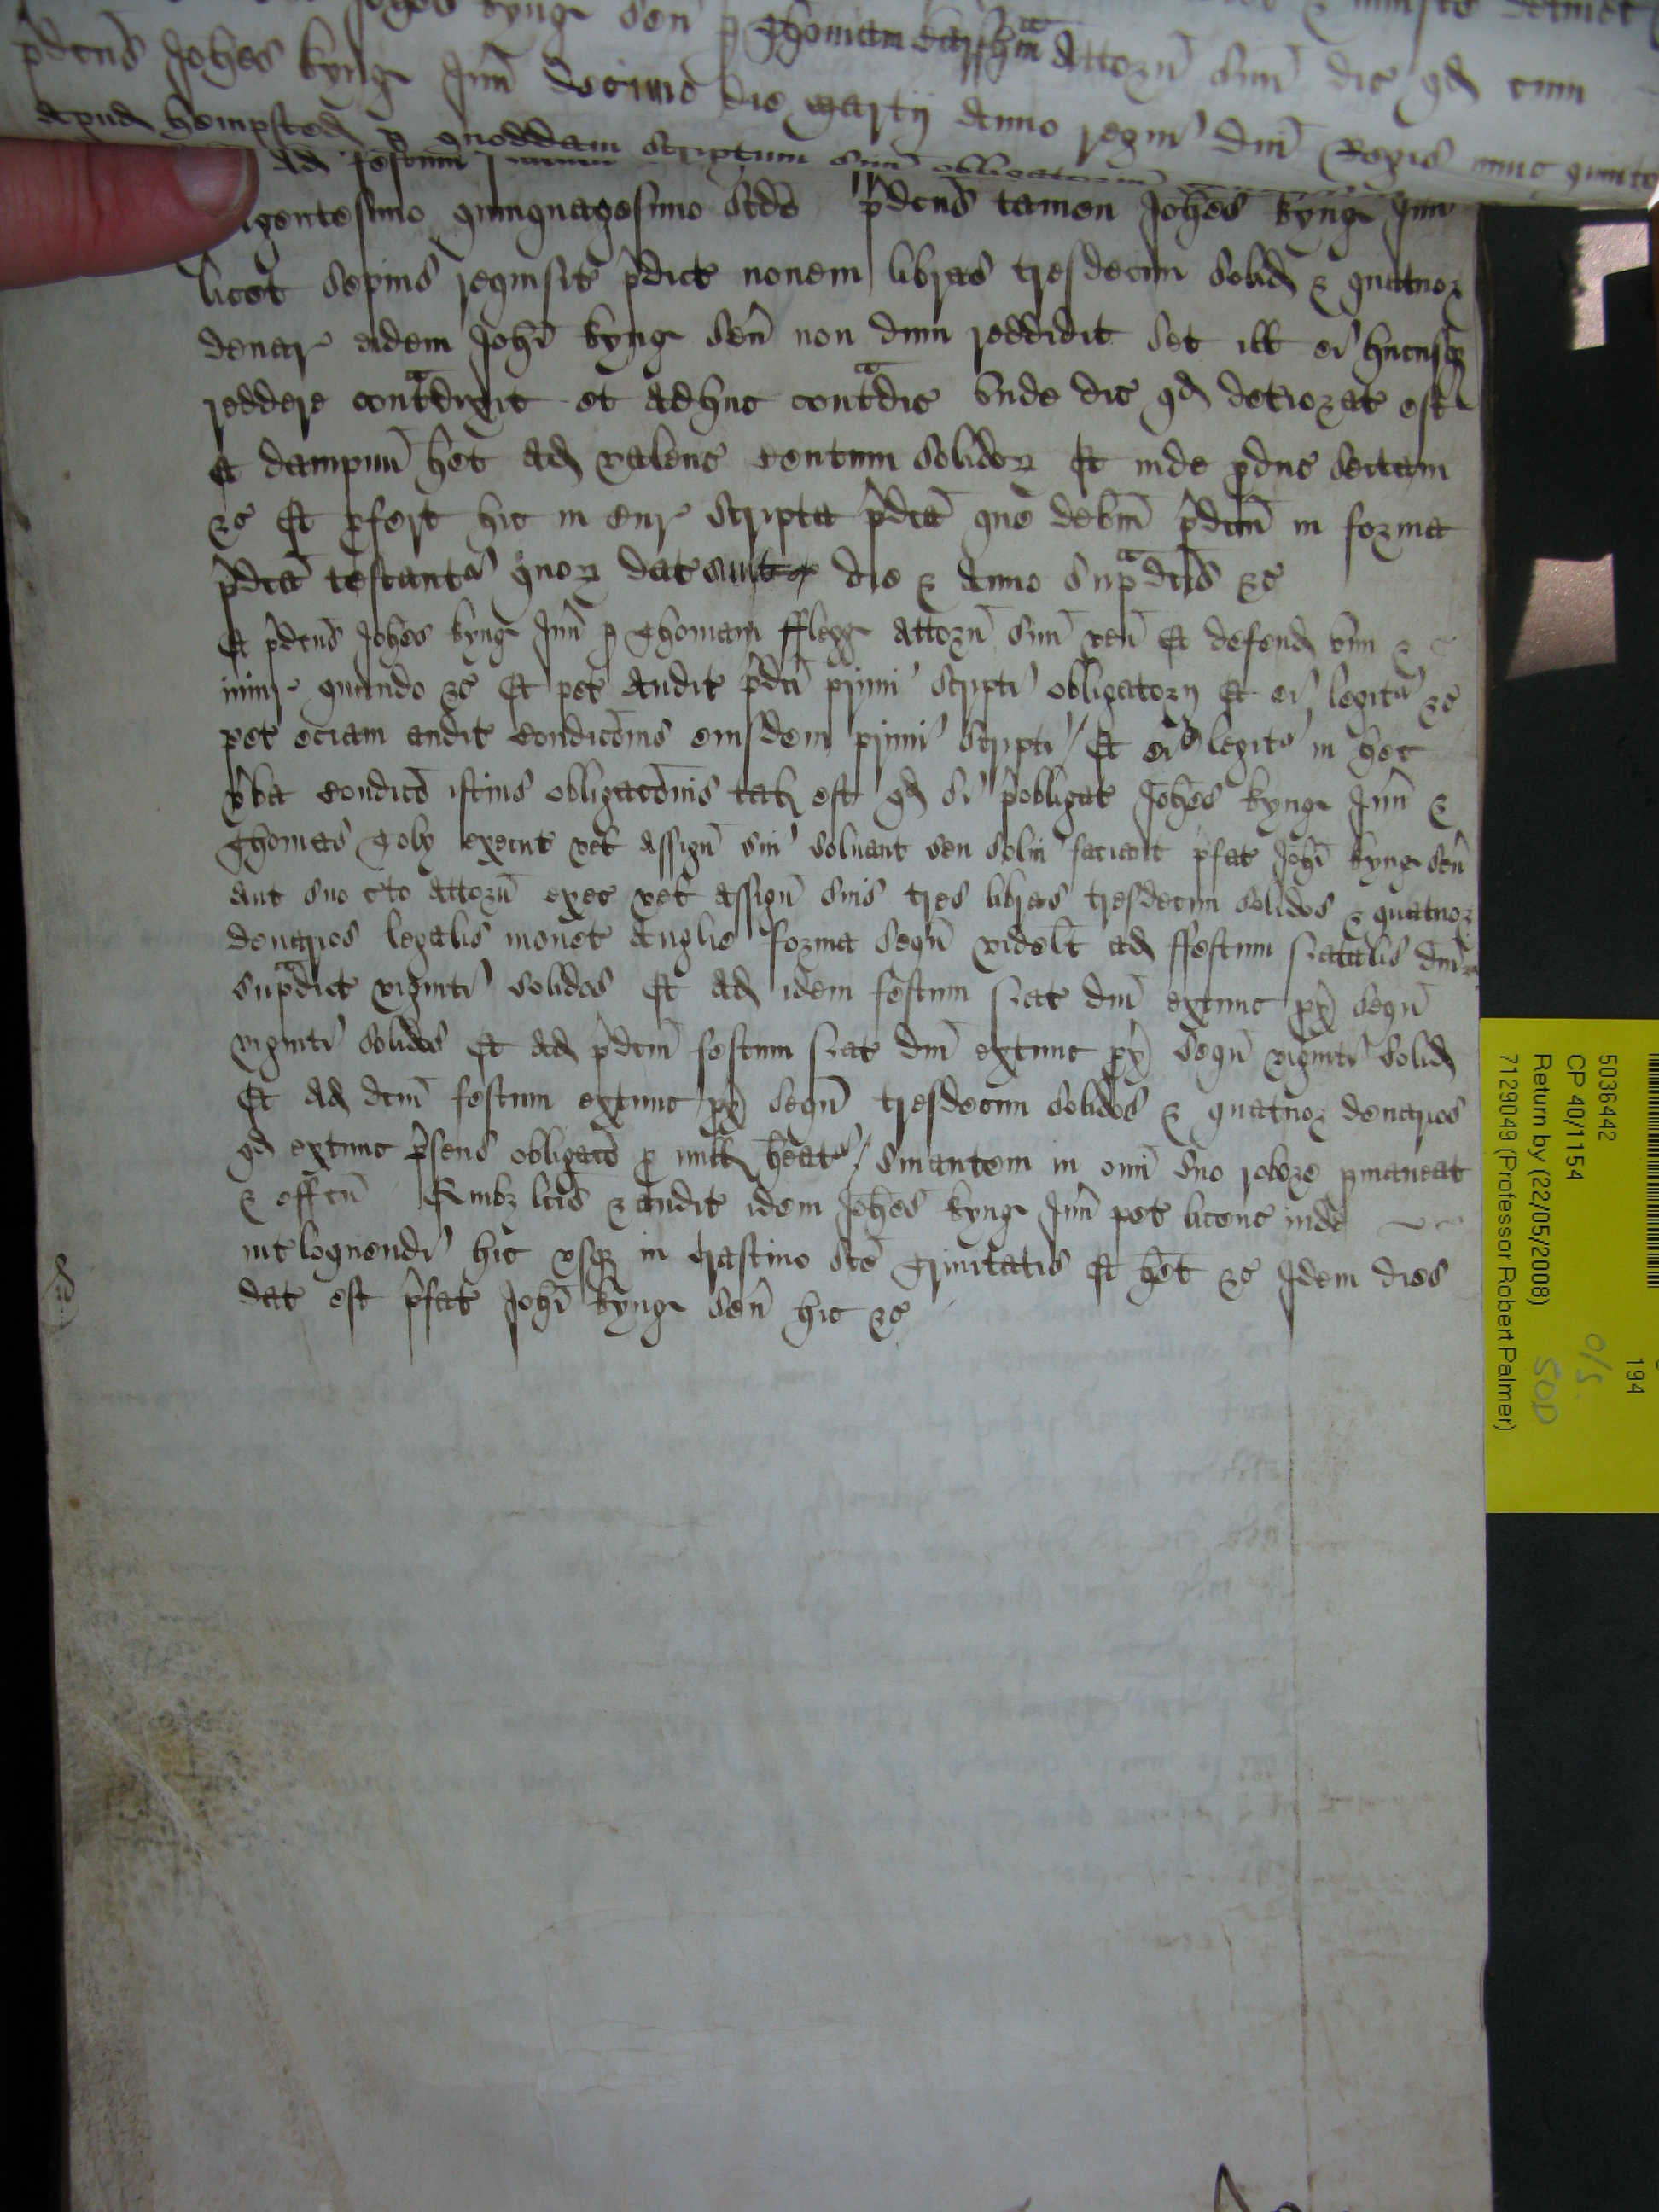 Johes kyng sen p Thomam attorn suu dic qd cum
pdcus Johes kyng Jun decimo die marcij anno regni dni Regis nunc quinto
apud hempsted p quoddam scriptum suu obligatorium
ad festum
gentesimo quinquagesimo scdo pdcus tamen Johes kyng Jun
licet sepius requisit pdict novem libras tresdecim solid & quatuor
denar eidem Johi kyng sen non dum reddidit set ill ei hucusq
reddere contradixit et adhuc contradic vnde dic qd deteriorat est
et dampnu het ad valenc centum solidor Et inde pduc sectam
&c Et pfert hic in cur scripta pdca que debm pdcm in forma
pdca testantr quor dat sunt die & anno supradcis &c
Et pdcus Johes kyng Jun p Thomam fflegg attorn suu ven Et defend vim &
iniur quando &c Et pet auditu pdci primi scripti obligatorij Et ei legitr &c
pet eciam auditu condicois eiusdem primi scripti Et ei legitr in hec
vba condico istius obligacois talis est qd si pobligat Johes kyng Jun &
Thomas Toby execut vel assign sui soluant seu solui faciant pfat Johi kyng sen
aut suo cto attorn exec vel assign suis tres libras tresdecim solidos & quatuor
denarios legalis monet anglie forma sequ videlt ad ffestum Natalis dni
supradict viginti solidos Et ad idem festum Nat dni extunc px sequ
viginti solidos Et ad pdcm festum Nat dni extunc px sequ viginti solid
Et ad dcm festum extunc px sequ tresdecim solidos & quatuor denarios
qd extunc psens obligaco p null heatr sinautem in omi suo robore pmaneat
& effcu Quibz lcis & audit idem Johes kyng Jun pet licenc inde
intloquendi hic vsq in crastino sce Trinitatis Et het &c Idem dies
dat est pfat Johi kyng sen hic &c
194
5036442 O/S.
CP 40/1154
Return by (22/05/2008) SOD
7129049 (Professor Robert Palmer)